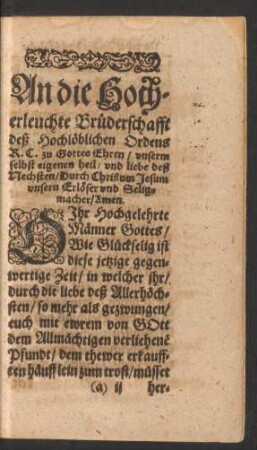 An die Hoch-
erleuchte Brüderschafft
deß Hochlöblichen Ordens
R. C. zu Gottes Ehren / vnserm
selbst eigenen heil / vnd liebe deß
Nechsten / Durch Christum Jesum
vnsern Erlöser vnd Selig-
macher / Amen.
O Ihr Hochgelehrte
Männer Gottes /
Wie Glückselig ist
diese jetzige gegen-
wertige Zeit / in welcher jhr /
durch die liebe deß Allerhöch-
sten / so mehr als gezwungen /
euch mit ewrem von GOtt
dem Allmächtigen verliehenē
Pfundt / dem thewer erkauff-
ten häufflein zum trost / müsset
(a) ij her-